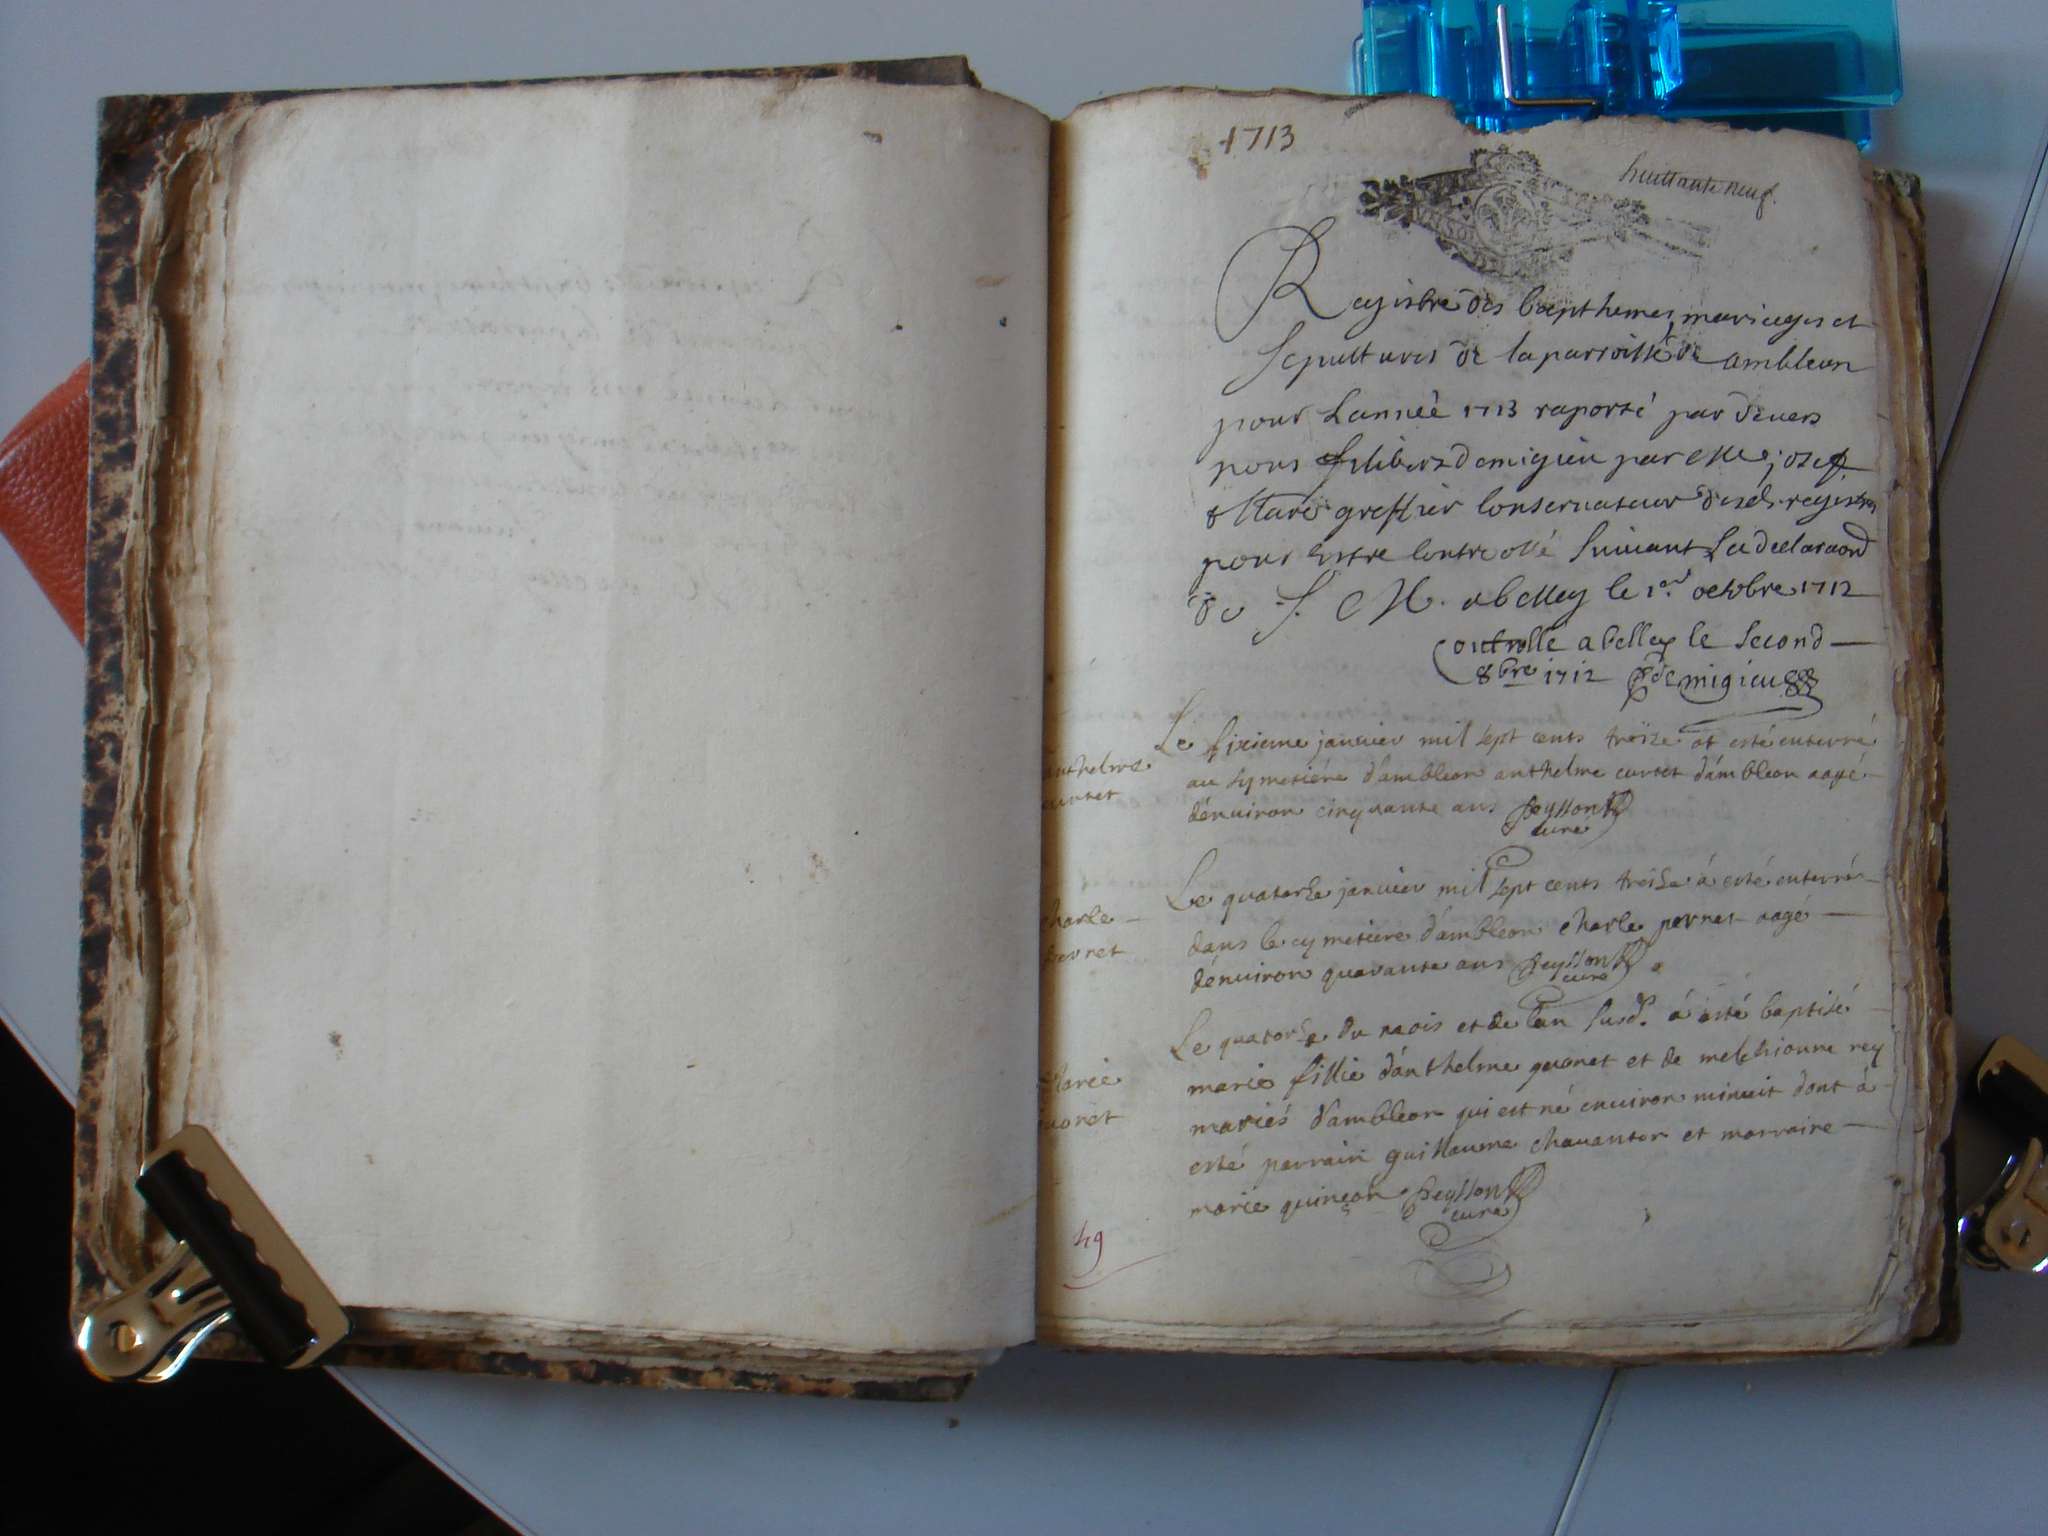 1713
huittante neuf.
Registre des bapthemes, mariages et
Sepultures de la parroisse de ambleon
pour Lanneè 1713 raporté par devers
nous filibert demigieu par Me josef
Marc greffier Conservateur desd. registres
pour estre Controllé Suivant La declaraond
de S. M. a belley le 1er octobre 1712
Controlle a belley le second
8bre 1712 demigieu
anthelme
curtet
Le sixieme janvier mil sept cents treize at esté enterré
au symetiére d'ambleon anthelme curtet d'ambleon aagé
d'environ cinquante ans peysson
curé
charle
pernet
Le quatorze janvier mil sept cents treize á esté enterré
dans le cymetiere d'ambleon charle pernet aagé
d'environ quarante ans peysson
curé
Marie
quonet
Le quatorze du mois et de l'an susd. á esté baptisé
marie fillie d'anthelme quonet et de melchionne rey
mariés d'ambleon qui est né environ minuit dont á
esté parrain guillaume chavanton et marraine
marie quinçon peysson
curé
49